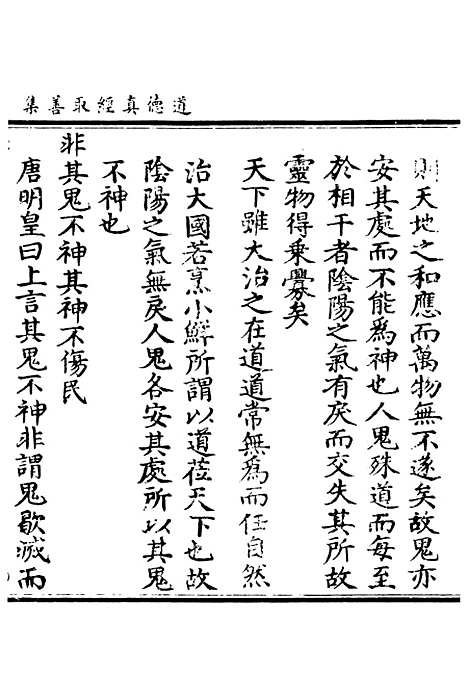 道德真經取善集
則天地之和應而萬物無不遂矣故鬼亦
安其處而不能爲神也人鬼殊道而每至
於相干者陰陽之氣有戾而交失其所故
靈物得乗釁矣
天下雖大治之在道道常無爲而任自然
治大國若烹小鮮所謂以道莅天下也故
陰陽之氣無戾人鬼各安其處所以其鬼
不神也
非其鬼不神其神不傷民
唐明皇曰上言其鬼不神非謂鬼歇滅而